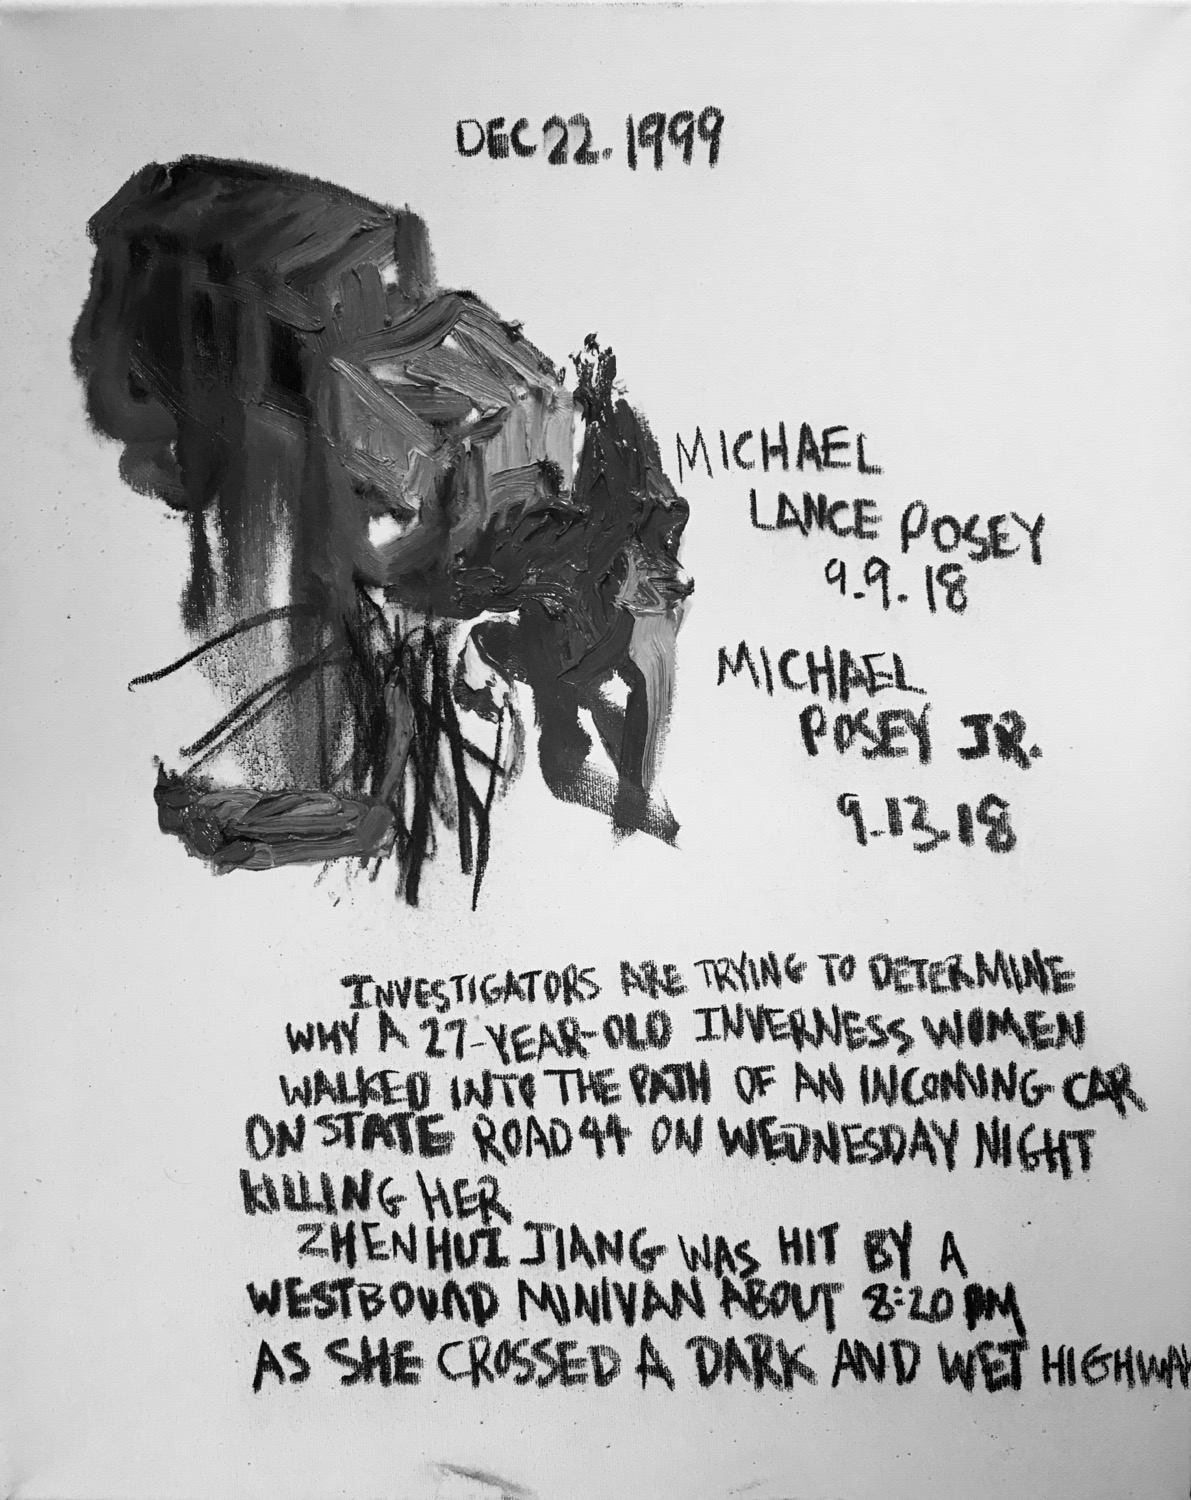 DEC 22. 1999
MICHAEL
LANCE POSEY
9.9.18
MICHAEL
POSEY JR.
9.13.18
INVESTIGATORS ARE TRYING TO DETERMINE
WHY A 27-YEAR-OLD INVERNESS WOMEN
WALKED INTO THE PATH OF AN INCOMING CAR
ON STATE ROAD 44 ON WEDNESDAY NIGHT
KILLING HER
ZHENHUI JIANG WAS HIT BY A
WESTBOUND MINIVAN ABOUT 8:20 PM
AS SHE CROSSED A DARK AND WET HIGHWAY